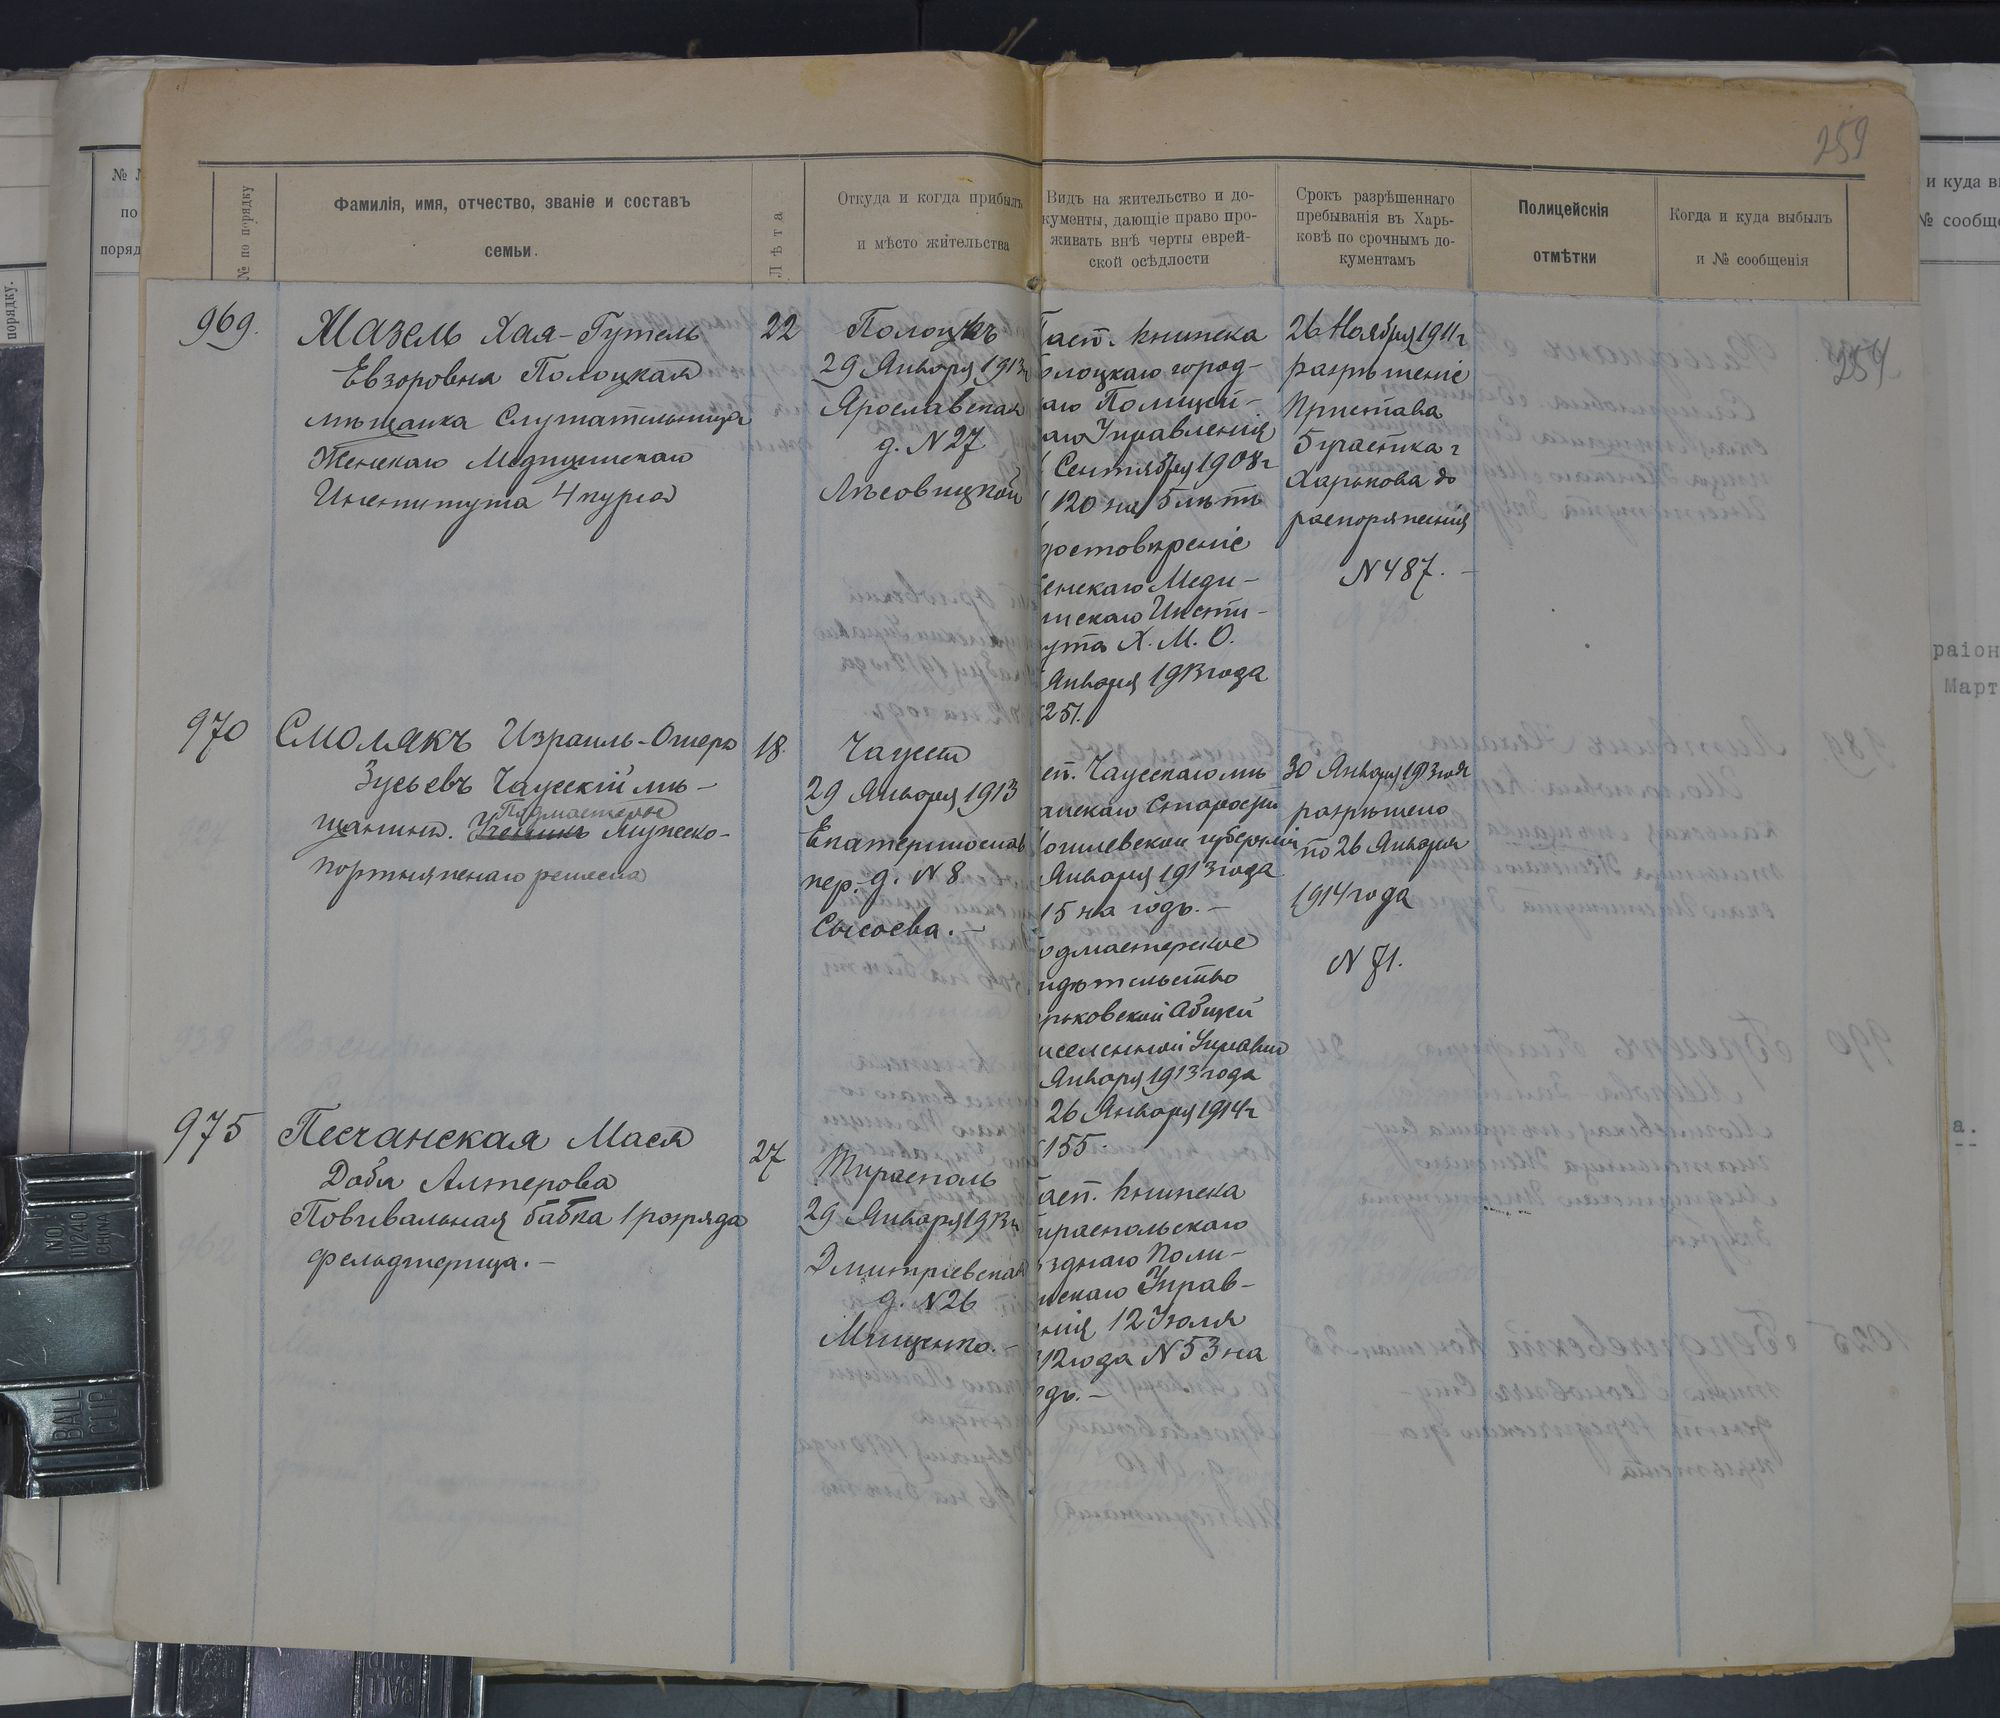 259
№ по порядку
Фамилія, имя, отчество, званіе и составъ
семьи.
Лѣта
Откуда и когда прибылъ
и мѣсто жительства
Видъ на жительство и до-
кументы, дающіе право про-
живать внѣ черты еврей-
ской осѣдлости
Срокъ разрѣшеннаго
пребыванія въ Харь-
ковѣ по срочнымъ до-
кументамъ
Полицейскія
отмѣтки
Когда и куда выбылъ
и № сообщенія
254
969.
Мазель Хая-Гутель
Евзоровна Полоцкая
мѣщанка Слушательница
Женскаго Медицинскаго
Института 4 курса
22
Полоцкъ
29 Января 1913 г
Ярославская
д. N 27
Лѣсовицкой
асп. книжка
олоцкаго город-
аго Полицей-
аго Управленія
Сентября 1908 г
120 на 5 лѣтъ
достовѣреніе
енскаго Меди-
нскаго Инсти-
ута Х. М. О.
Января 1913 года
251.
26 Ноября 1911 г
разрѣшеніе
Пристава
5 участка г
Харькова до
распоряженія
N 487. -
970
Смолякъ Израиль-Ошеръ
Зусьевъ Чаусскій мѣ-
щанинъ. Подмастерье
Ученикъ мужеско-
портняжнаго ремесла
18.
Чаусы
29 Января 1913
Екатеринослав
пер. д. N 8
Сысоева. -
сп. Чаусскаго мѣ
анскаго Старосты
огилевской губерніи
Января 1913 года
15 на годъ. -
одмастерское
идѣтельство
рьковской Общей
меслен­ной Управы
Января 1913 года
26 Января 1914 г
155.
30 Января 1913 года
разрѣшено
по 26 Января
1914 года
N 71.
975
Песчанская Мася
Доба Алтерова
Повивальная бабка 1 розряда
фельдшерица. -
27
Тирасполь
29 Января 1913 г
Дмитріевская
д. N 26
Мищенко. -
асп. книжка
ираспольскаго
зднаго Поли-
йскаго Управ-
нія 12 Іюля
12 года N 53 на
одъ. -
NO.
11240
CHINA
BALL
CLIP